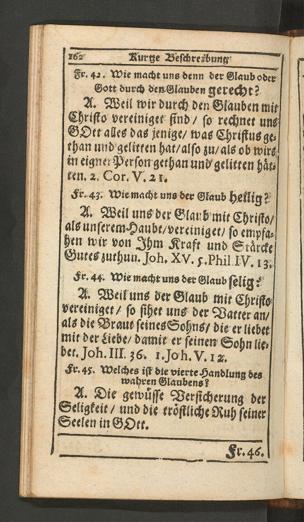 162 Kurtze Beschreibung
Fr. 42. Wie macht uns denn der Glaub oder
Gott durch den Glauben gerecht?
A. Weil wir durch den Glauben mit
Christo vereiniget sind / so rechnet uns
GOtt alles das jenige / was Christus ge-
than und gelitten hat / also zu / als ob wirs
in eigner Person gethan und gelitten hät-
ten. 2. Cor. V. 21.
Fr. 43. Wie macht uns der Glaub heilig?
A. Weil uns der Glaub mit Christo /
als unserem Haubt / vereiniget / so empfa-
hen wir von Ihm Kraft und Stärcke
Gutes zuthun. Joh. XV. 5. Phil. IV. 13.
Fr. 44. Wie macht uns der Glaub selig?
A. Weil uns der Glaub mit Christo
vereiniget / so sihet uns der Vatter an /
als die Braut seines Sohns / die er liebet
mit der Liebe / damit er seinen Sohn lie-
bet. Joh. III. 36. 1. Joh. V. 12.
Fr. 45. Welches ist die vierte Handlung des
wahren Glaubens?
A. Die gewüsse Versicherung der
Seligkeit / und die tröstliche Ruh seiner
Seelen in GOtt.
Fr. 46.